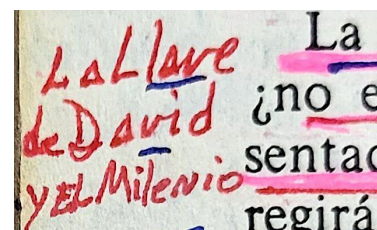 La Llave
de David
y EL Milenio
La
¿no e
sentad
regirá